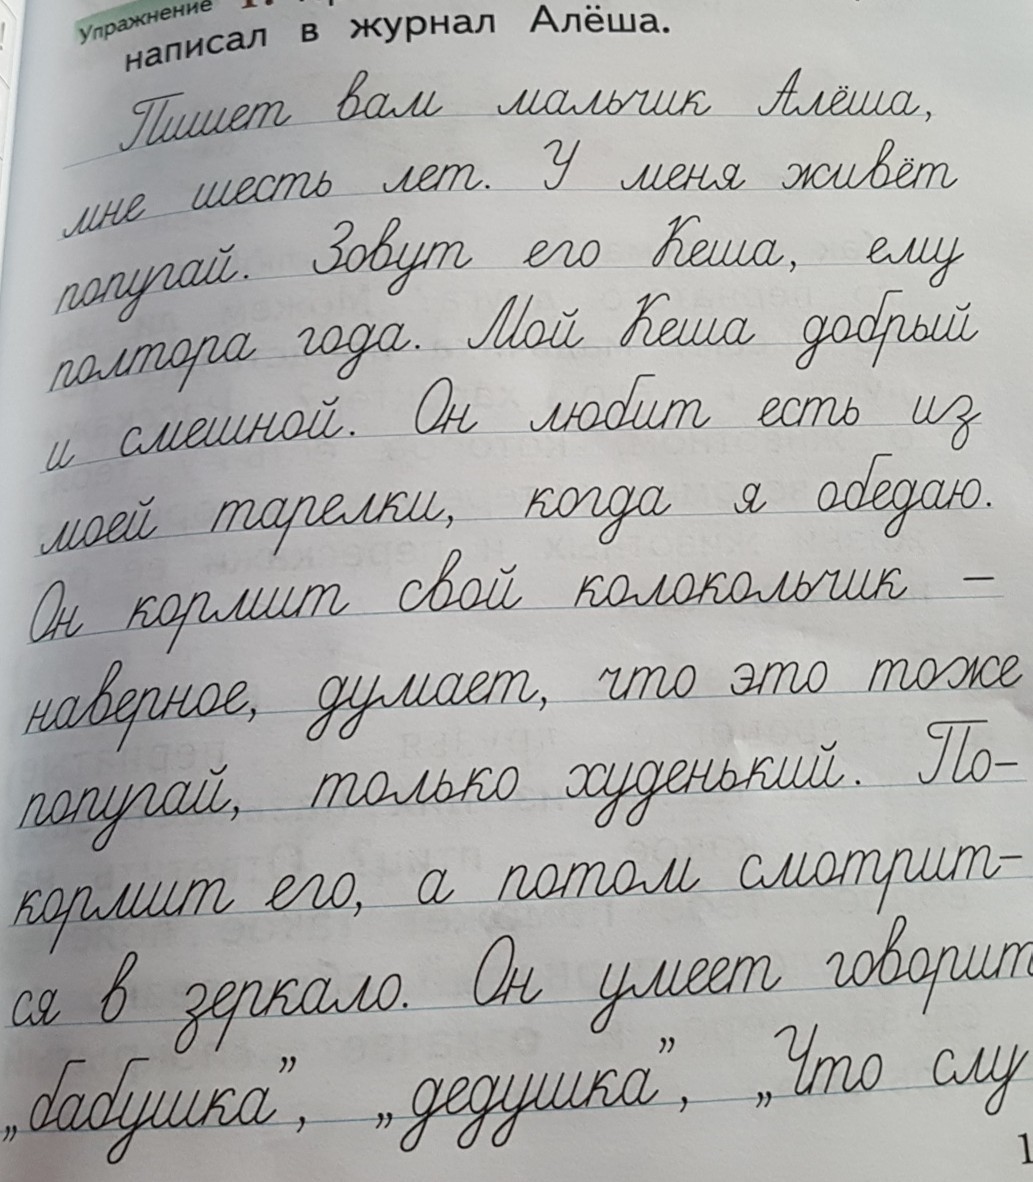 Упражнение 1.
написал в журнал Алёша.
Пишет вам мальчик Алёша,
мне шесть лет. У меня живёт
попугай. Зовут его Кеша, ему
полтора года. Мой Кеша добрый
и смешной. Он любит есть из
моей тарелки, когда я обедаю.
Он кормит свой колокольчик –
наверное, думает, что это тоже
попугай, только худенький. По-
кормит его, а потом смотрит-
ся в зеркало. Он умеет говорит
„бабушка”, „дедушка”, „Что слу
1